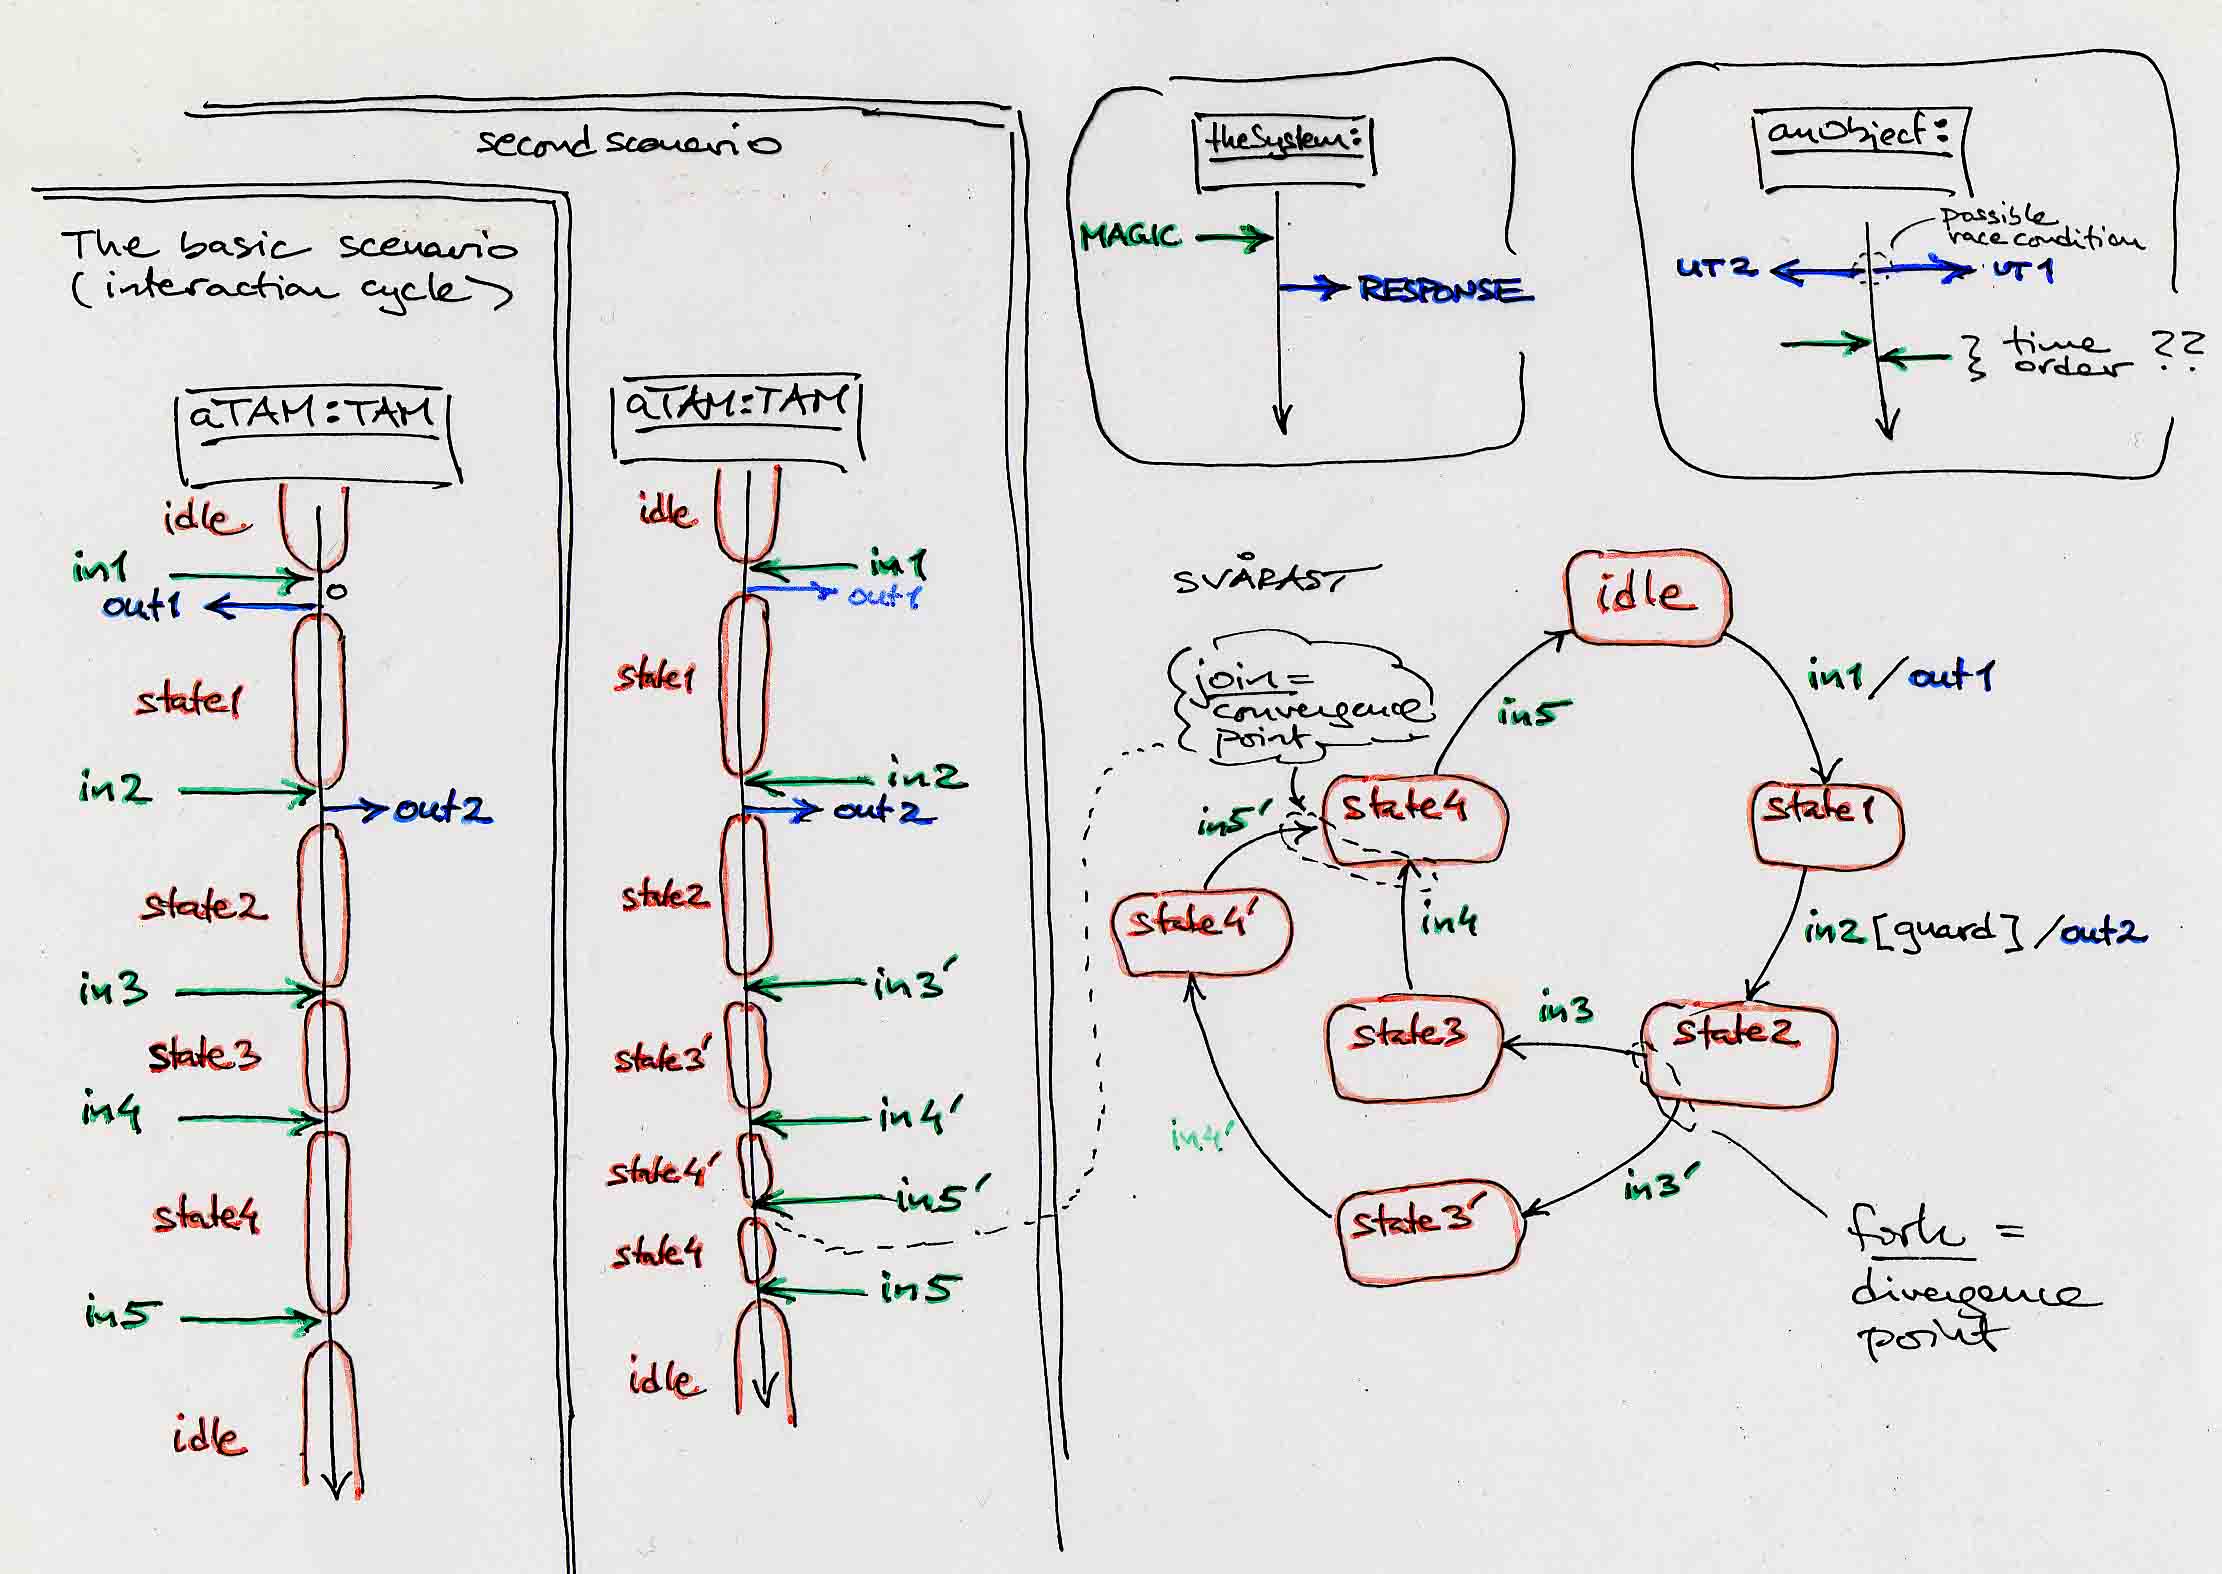 second scenario
The basic scenario
(interaction cycle)
aTAM:TAM
idle
in1
out1
state1
in2
out2
state2
in3
state3
in4
state4
in5
idle
aTAM:TAM
idle
in1
out1
state1
in2
out2
state2
in3'
state3'
in4'
state4'
in5'
state4
in5
idle
theSystem:
MAGIC
RESPONSE
anObject:
possible
race condition
UT2
UT1
} time
order ??
idle
join =
convergence
point
in1/out1
in5
state4
state1
in5'
state4'
in4
in2[guard]/out2
in3
state3
state2
in4'
in3'
state3'
fork =
divergence
point